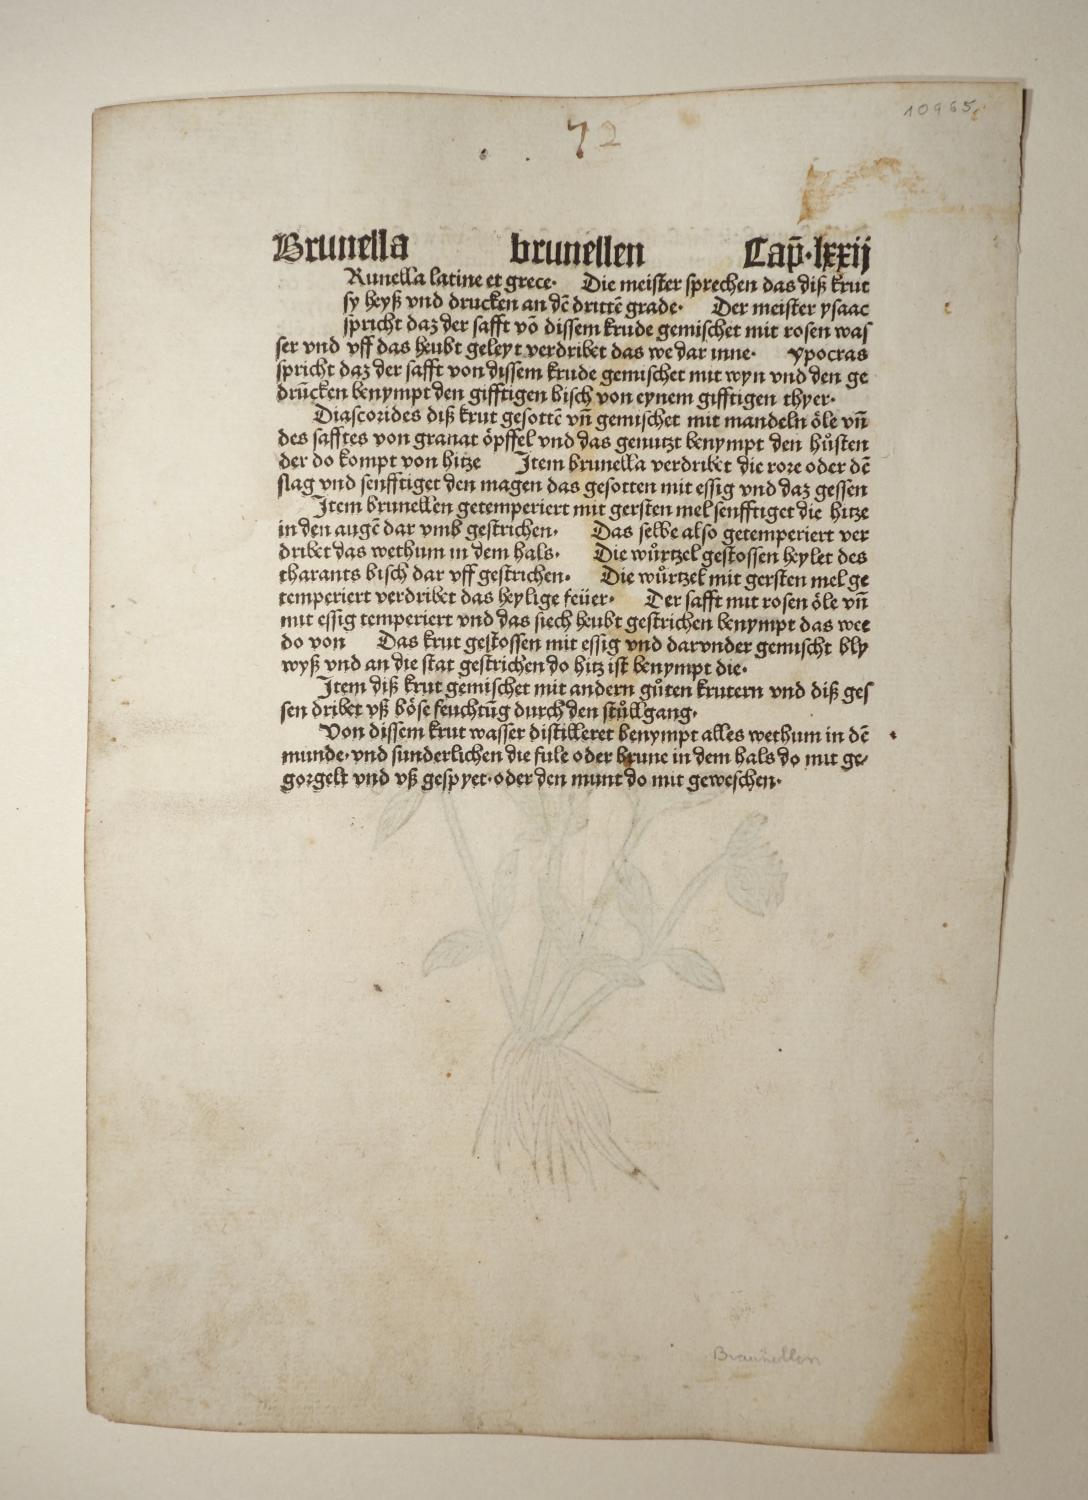 10965
72
Brunella brunellen Cap̄·lxxij
Runella latine et grece· Die meister sprechen das diß krut
sy heyß vnd drucken an dē drittē grade· Der meister ysaac
spricht daz der safft vō dissem krude gemischet mit rosen was
ser vnd vff das heubt geleyt verdribet das we dar inne· ypocras
spricht daz der safft von dissem krude gemischet mit wyn vnd den ge
drūcken benympt den gifftigen bisch von eynem gifftigen thyer·
Diascorides diß krut gesottē vn̄ gemischet mit mandeln öle vn̄
des safftes von granat öpffel vnd das genutzt benympt den hůsten
der do kompt von hitze Item brunella verdribet die rore oder dē
flag vnd senfftiget den magen das gesotten mit essig vnd daz gessen
Item brunellen getemperiert mit gersten mel senfftiget die hitze
in den augē dar vmb gestrichen· Das selbe also getemperiert ver
dribet das wethum in dem hals· Die wůrtzel gestossen heylet des
tharants bisch dar vff gestrichen· Die wůrtzel mit gersten mel ge
temperiert verdribet das heylige feüer· Der safft mit rosen öle vn̄
mit essig temperiert vnd das siech heubt gestrichen benympt das wee
do von Das krut gestossen mit essig vnd darvnder gemischt bly
wyß vnd an die stat gestrichen do hitz ist benympt die·
Item diß krut gemischet mit andern gůten krutern vnd diß ges
sen dribet vß böse feuchtūg durch den stůllgang·
Von dissem krut wasser distilleret benympt alles wethum in dē
munde·vnd sunderlichen die fule oder brune in dem hals do mit ge⸗
gorgelt vnd vß gespyet·oder den munt do mit geweschen·